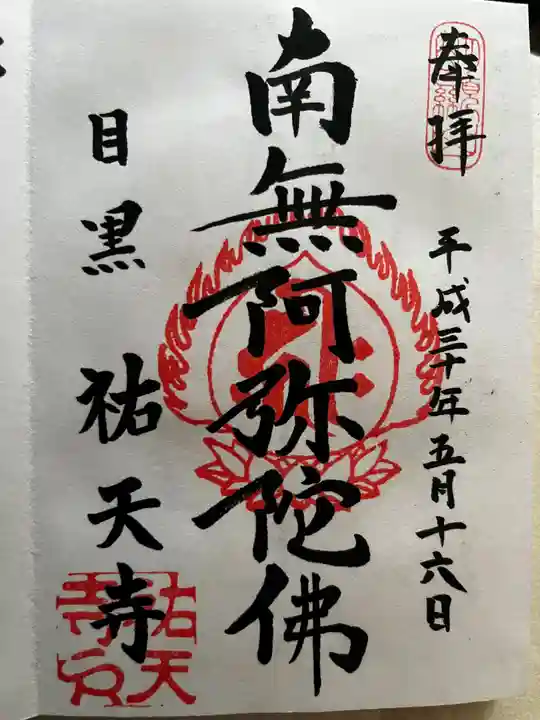 奉拝
平成三十年五月十六日
南無阿弥陀佛
目黒 祐天寺